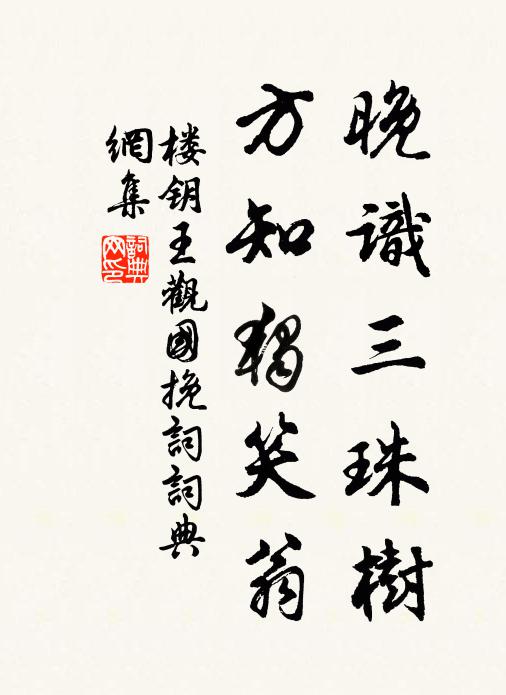 晚識三珠樹
方知獨笑翁
楼钥王觀國挽詞詞典
網集
詞典
网印